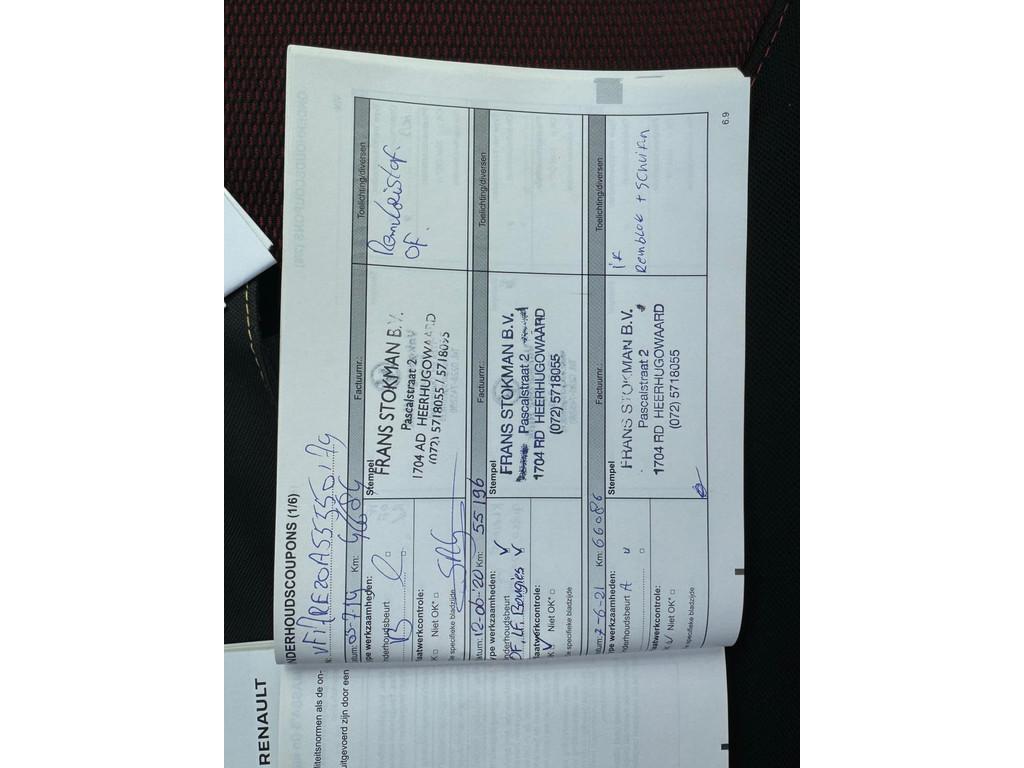 RENAULT
liteitsnormen als de on-
uitgevoerd zijn door een
NDERHOUDSCOUPONS (1/6)
atum: 05-7-19 Km: 46684 Factuurnr.: Toelichting/diversen
ype werkzaamheden:
nderhoudsbeurt
B
laatwerkcontrole:
K □ Niet OK* □
ie specifieke bladzijde
Stempel
FRANS STOKMAN B.V.
Pascalstraat 2
1704 AD HEERHUGOWAARD
(072) 5718055 / 5718055
Remvloeistof.
OF.
atum: 12-06-'20 Km: 55196 Factuurnr.: Toelichting/diversen
ype werkzaamheden:
nderhoudsbeurt ✓
OF, LF, Bougies ✓
laatwerkcontrole:
K ✓ Niet OK* □
ie specifieke bladzijde
Stempel
FRANS STOKMAN B.V.
Pascalstraat 2
1704 RD HEERHUGOWAARD
(072) 5718055
atum: 7-6-21 Km: 66086 Factuurnr.: Toelichting/diversen
ype werkzaamheden:
nderhoudsbeurt A
laatwerkcontrole:
K Niet OK* □
ie specifieke bladzijde
Stempel
FRANS STOKMAN B.V.
Pascalstraat 2
1704 RD HEERHUGOWAARD
(072) 5718055
Remblok + schuiven
6.9